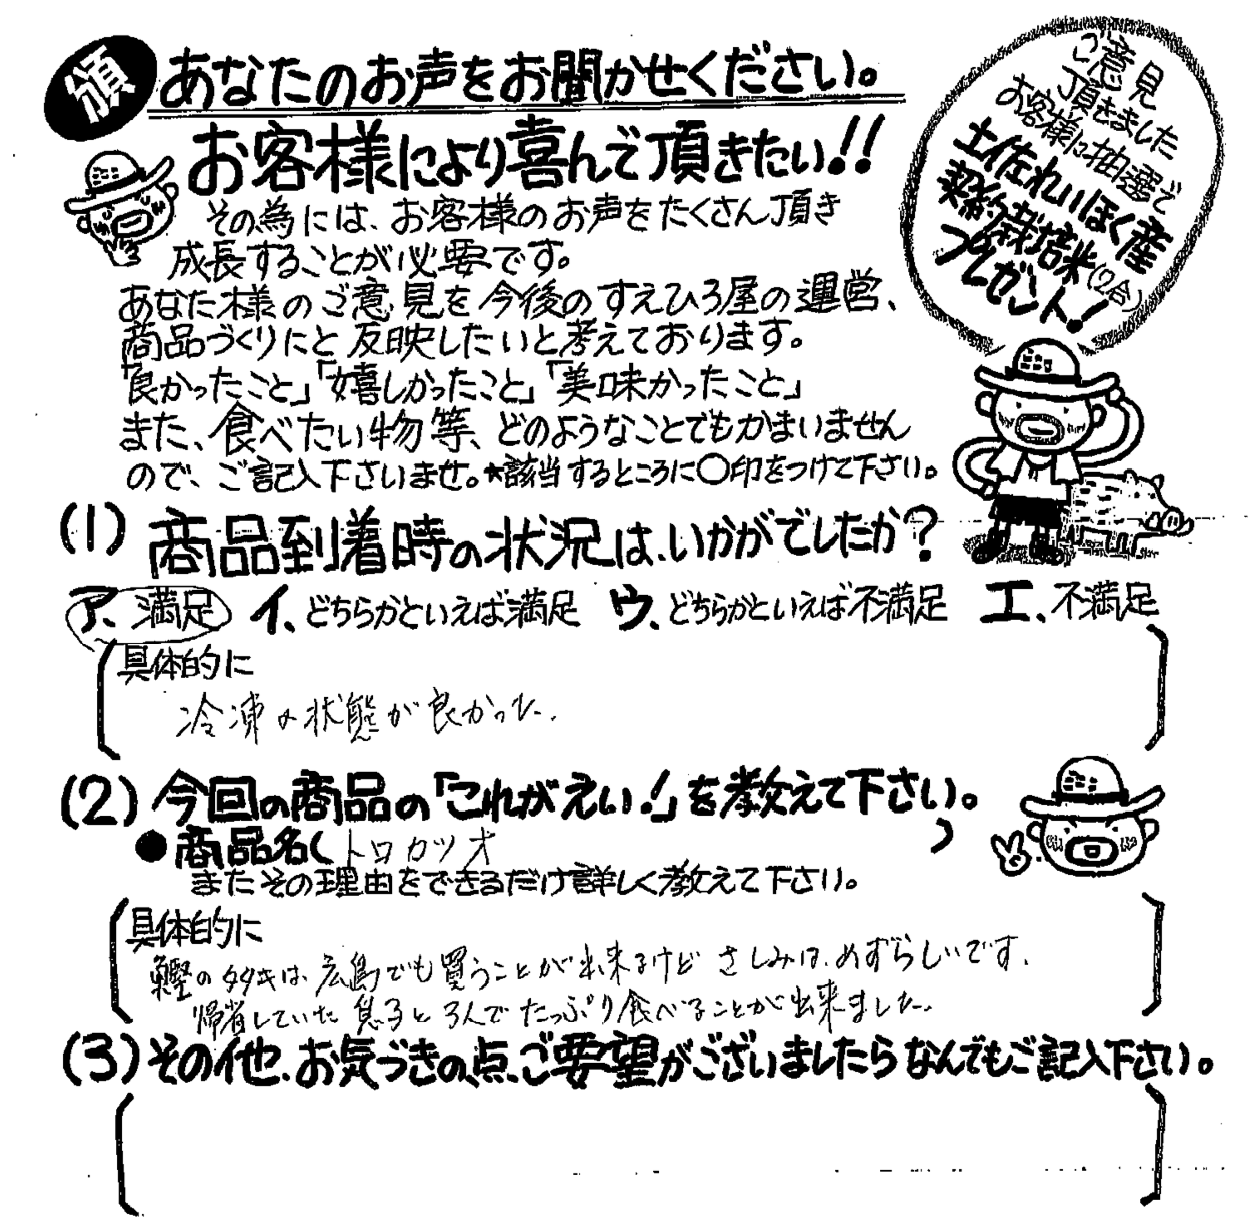 頒
あなたのお声をお聞かせください。
お客様により喜んで頂きたい!!
その為には、お客様のお声をたくさん頂き
成長することが必要です。
あなた様のご意見を今後のすえひろ屋の運営、
商品づくりにと反映したいと考えております。
「良かったこと」「嬉しかったこと」「美味かったこと」
また、食べたい物等、どのようなことでもかまいません
ので、ご記入下さいませ。★該当するところに〇印をつけて下さい。
ご意見
頂きました
お客様に抽選で
土佐れいほく産
契約栽培米(2合)
プレゼント!
(1)商品到着時の状況は、いかがでしたか?
ア、満足 イ、どちらかといえば満足 ウ、どちらかといえば不満足 エ、不満足
具体的に
冷凍の状態が良かった。
(2)今回の商品の「これがえい!」を教えて下さい。
●商品名(トロカツオ)
またその理由をできるだけ詳しく教えて下さい。
具体的に
鰹のタタキは、広島でも買うことが出来るけど さしみは、めずらしいです。
帰省していた息子と3人でたっぷり食べることが出来ました。
(3)その他、お気づきの点、ご要望がございましたらなんでもご記入下さい。